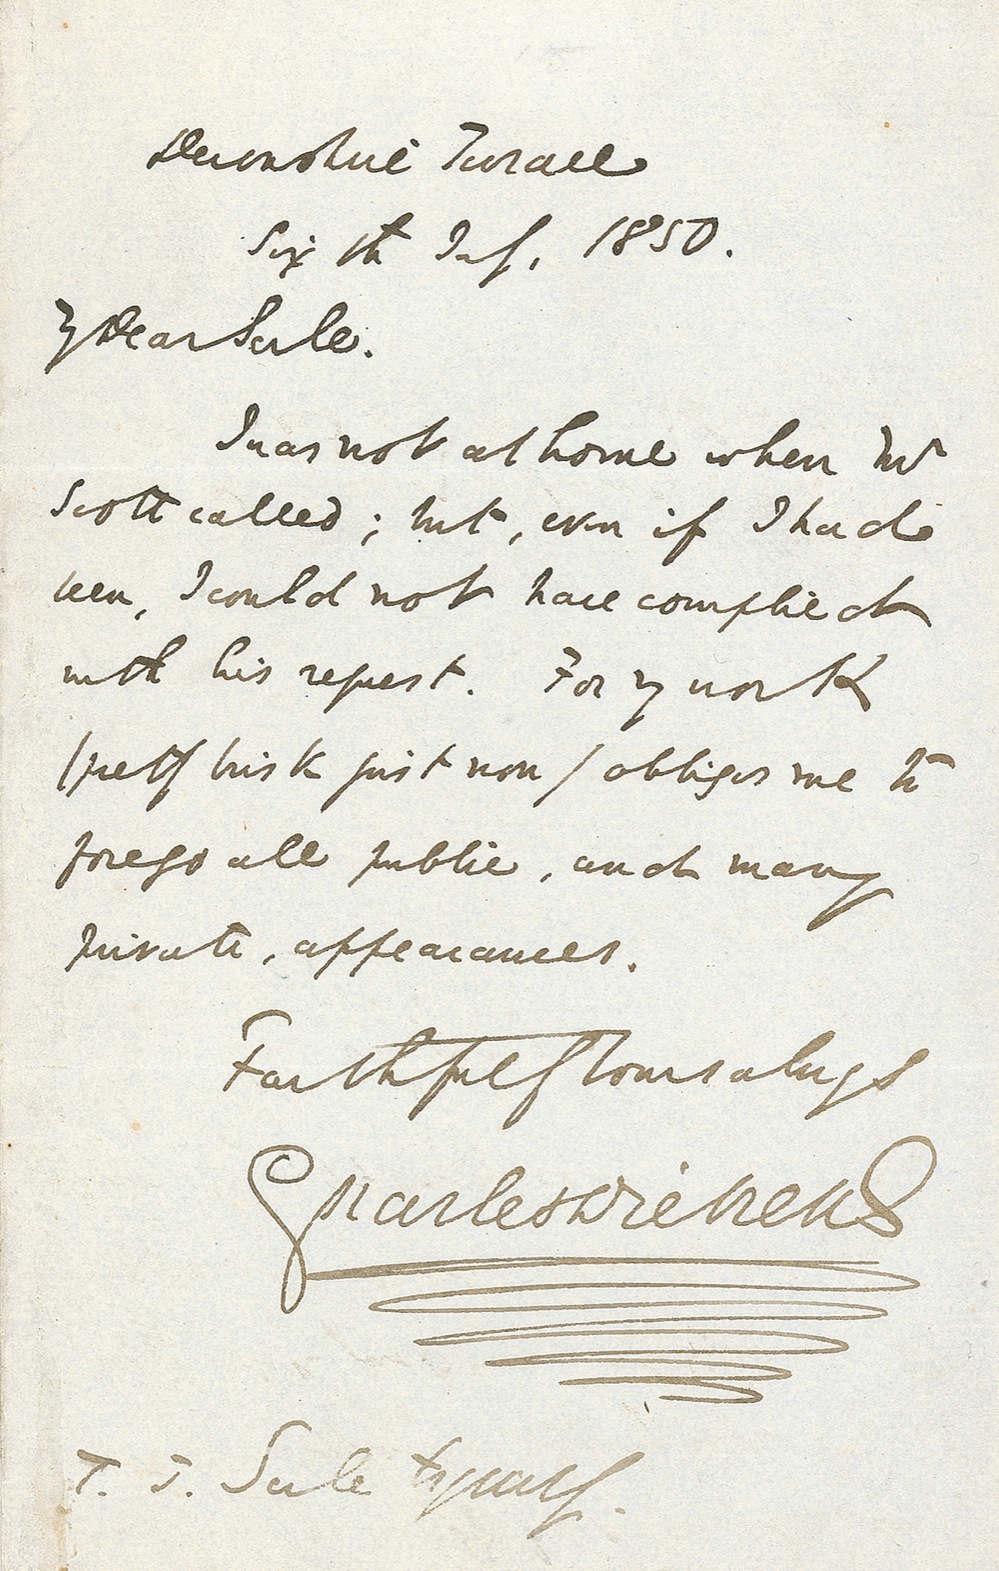 Devonshire Terrace
Sixth July, 1850.
My Dear Serle.
I was not at home when Mr
Scott called; but, even if I had
been, I could not have complied
with his request. For my work
(pretty brisk just now) obliges me to
forego all public, and many
private, appearances.
Faithfully Yours always
Charles Dickens
T. J. Serle Esquire.